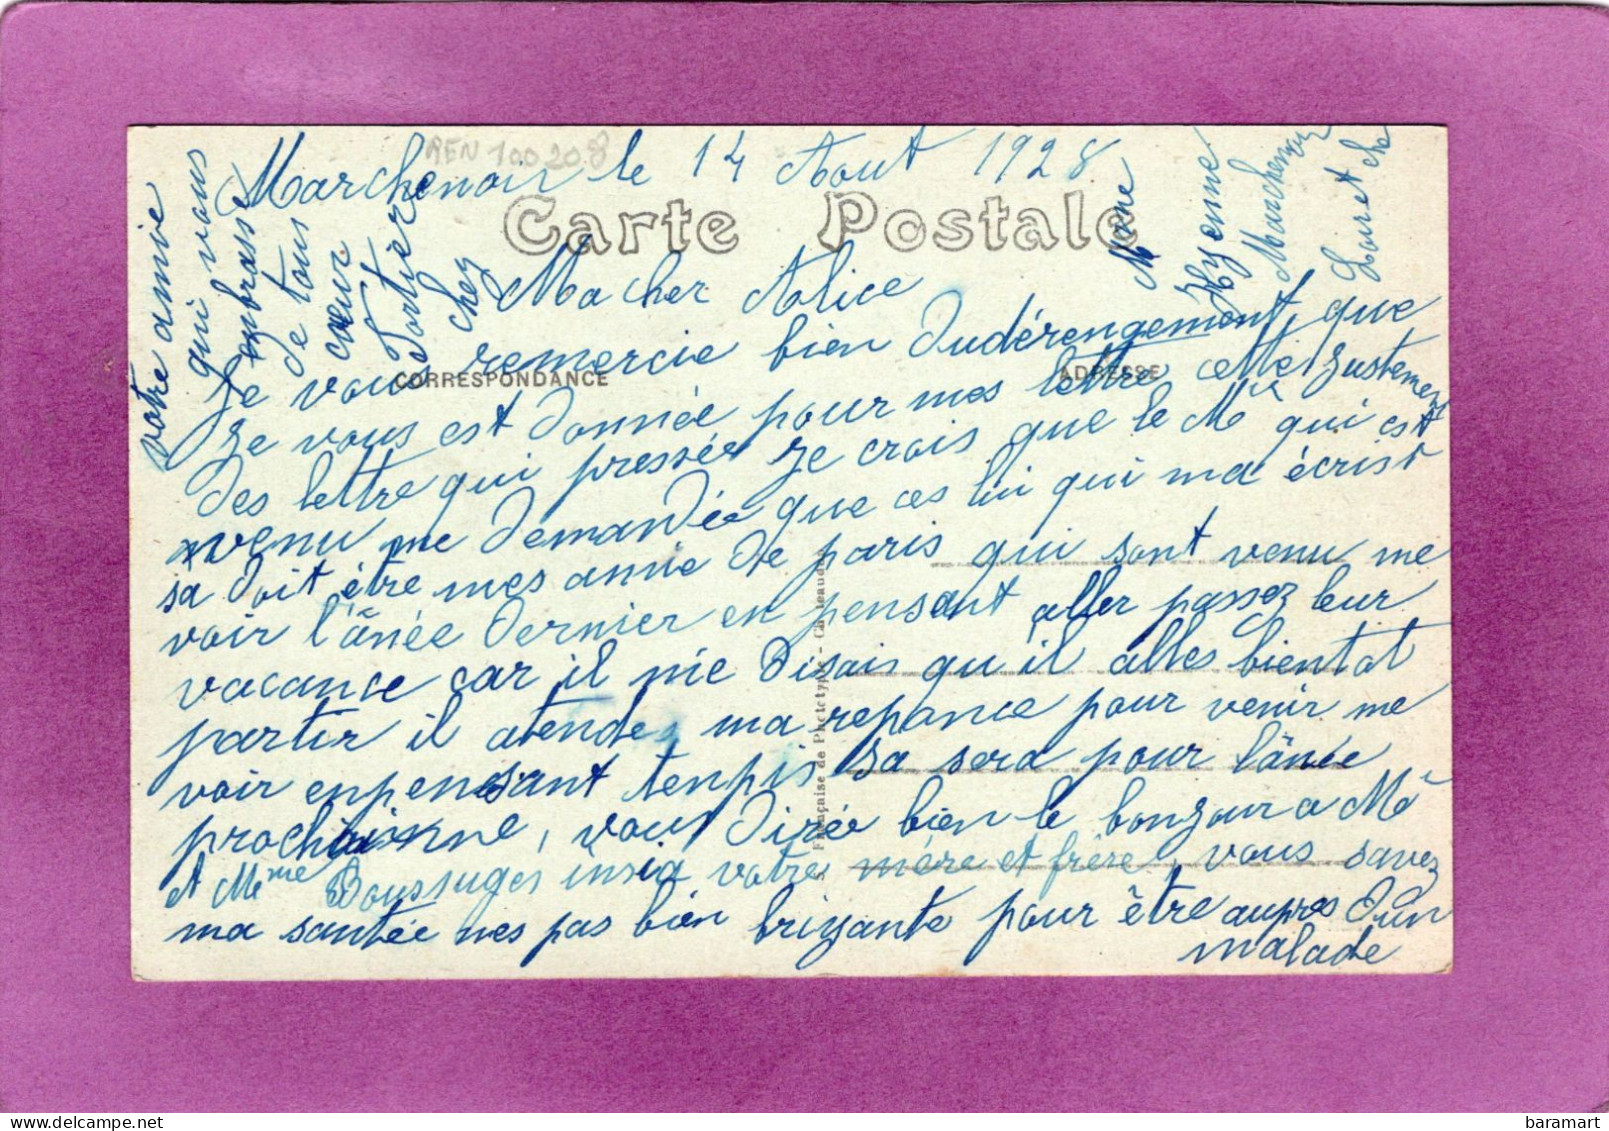 REN 100208
Marchenoir le 14 Aout 1928
Carte Postale
Ma cher Alice
CORRESPONDANCE
ADRESSE
Je vous remercie bien dudérengement, que
je vous est donnée pour mes lettre cette justement
des lettre qui pressée je crois que le Mr qui est
venu me demandée que ces lui qui ma écrist
sa doit être mes amie de paris qui sont venu me
voir l'anée dernier en pensant aller passez leur
vacance car il me disais qu'il alles bientot
partir il atendes ma repance pour venir me
voir enpensant tenpis sa sera pour l'anée
prochainne, vous dirée bien le bonjour a Mr
et Mme Boussuges insia votre mère et frère, vous savez
ma santée nes pas bien briyante pour être aupres d'un
malade
votre amie
qui vous
embrasse
de tous
cœur
chez
Française de Phototypie - Chateaudun
Marchenoir
Loir et che
baramart | delcampe.net